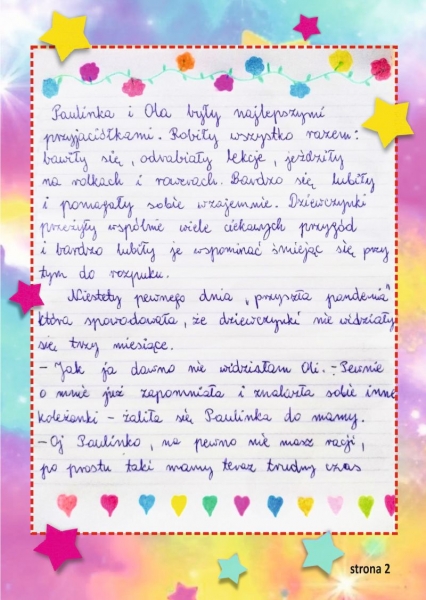 Paulinka i Ola były najlepszymi
przyjaciółkami. Robiły wszystko razem:
bawiły się, odrabiały lekcje, jeździły
na rolkach i rowerach. Bardzo się lubiły
i pomagały sobie wzajemnie. Dziewczynki
przeżyły wspólnie wiele ciekawych przygód
i bardzo lubiły je wspominać śmiejąc się przy
tym do rozpuku.
Niestety pewnego dnia „przyszła pandemia"
która spowodowała, że dziewczynki nie widziały
się trzy miesiące.
- Jak ja dawno nie widziałam Oli. - Pewnie
o mnie już zapomniała i znalazła sobie inne
koleżanki - żaliła się Paulinka do mamy.
- Oj Paulinko, na pewno nie masz racji,
po prostu taki mamy teraz trudny czas
strona 2